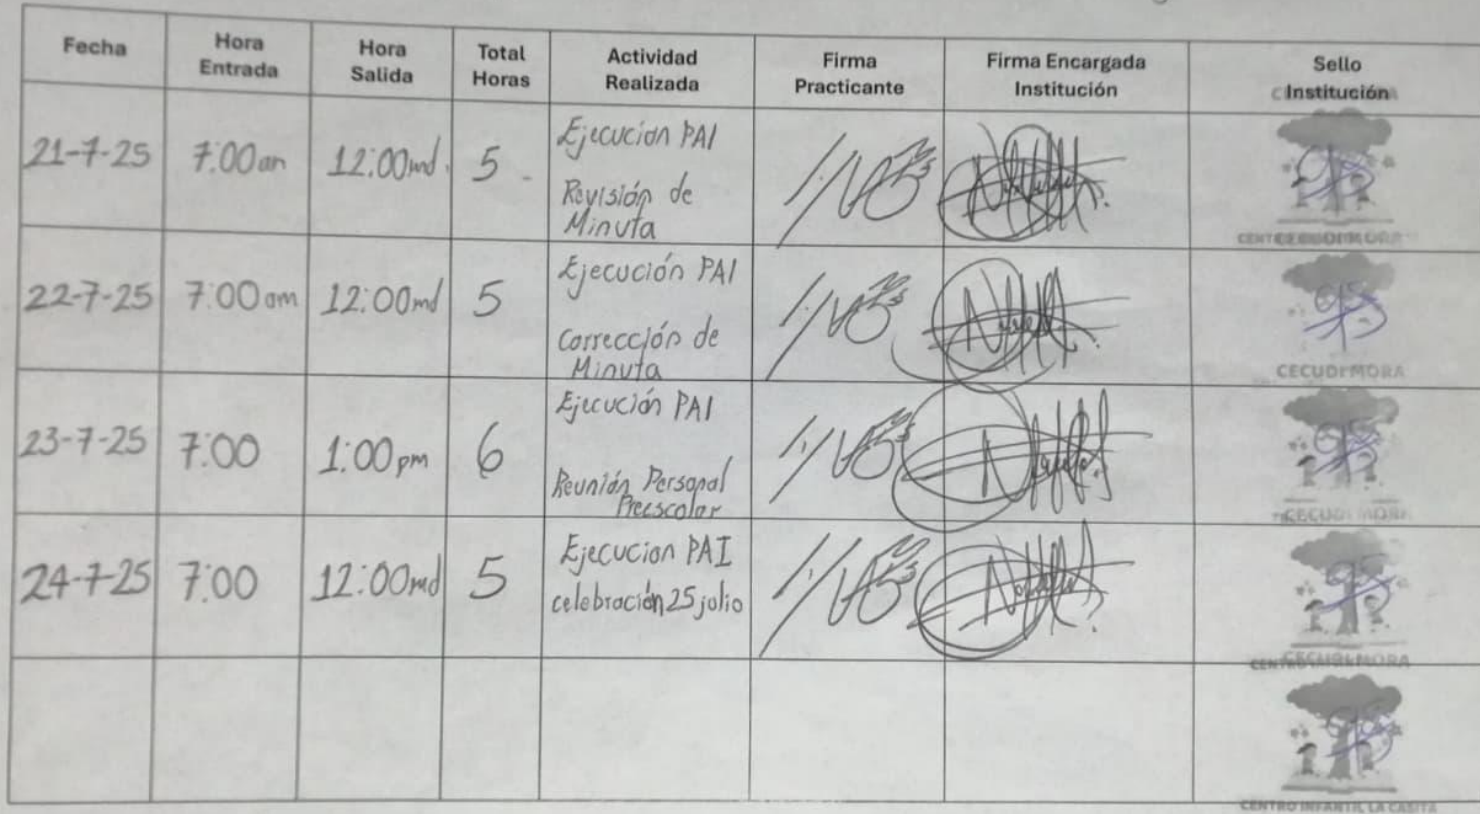 Fecha
Hora
Entrada
Hora
Salida
Total
Horas
Actividad
Realizada
Firma
Practicante
Firma Encargada
Institución
Sello
Institución
21-7-25
7:00am
12:00md.
5
Ejecución PAI
Revisión de
Minuta
22-7-25
7:00am
12:00md
5
Ejecución PAI
Corrección de
Minuta
CECUDI MORA
23-7-25
7:00
1:00pm
6
Ejecución PAI
Reunión Personal
Preescolar
CECUDI MORA
24-7-25
7:00
12:00md
5
Ejecucion PAI
celebración 25 julio
CECUDI MORA
CENTRO INFANTIL LA CASITA